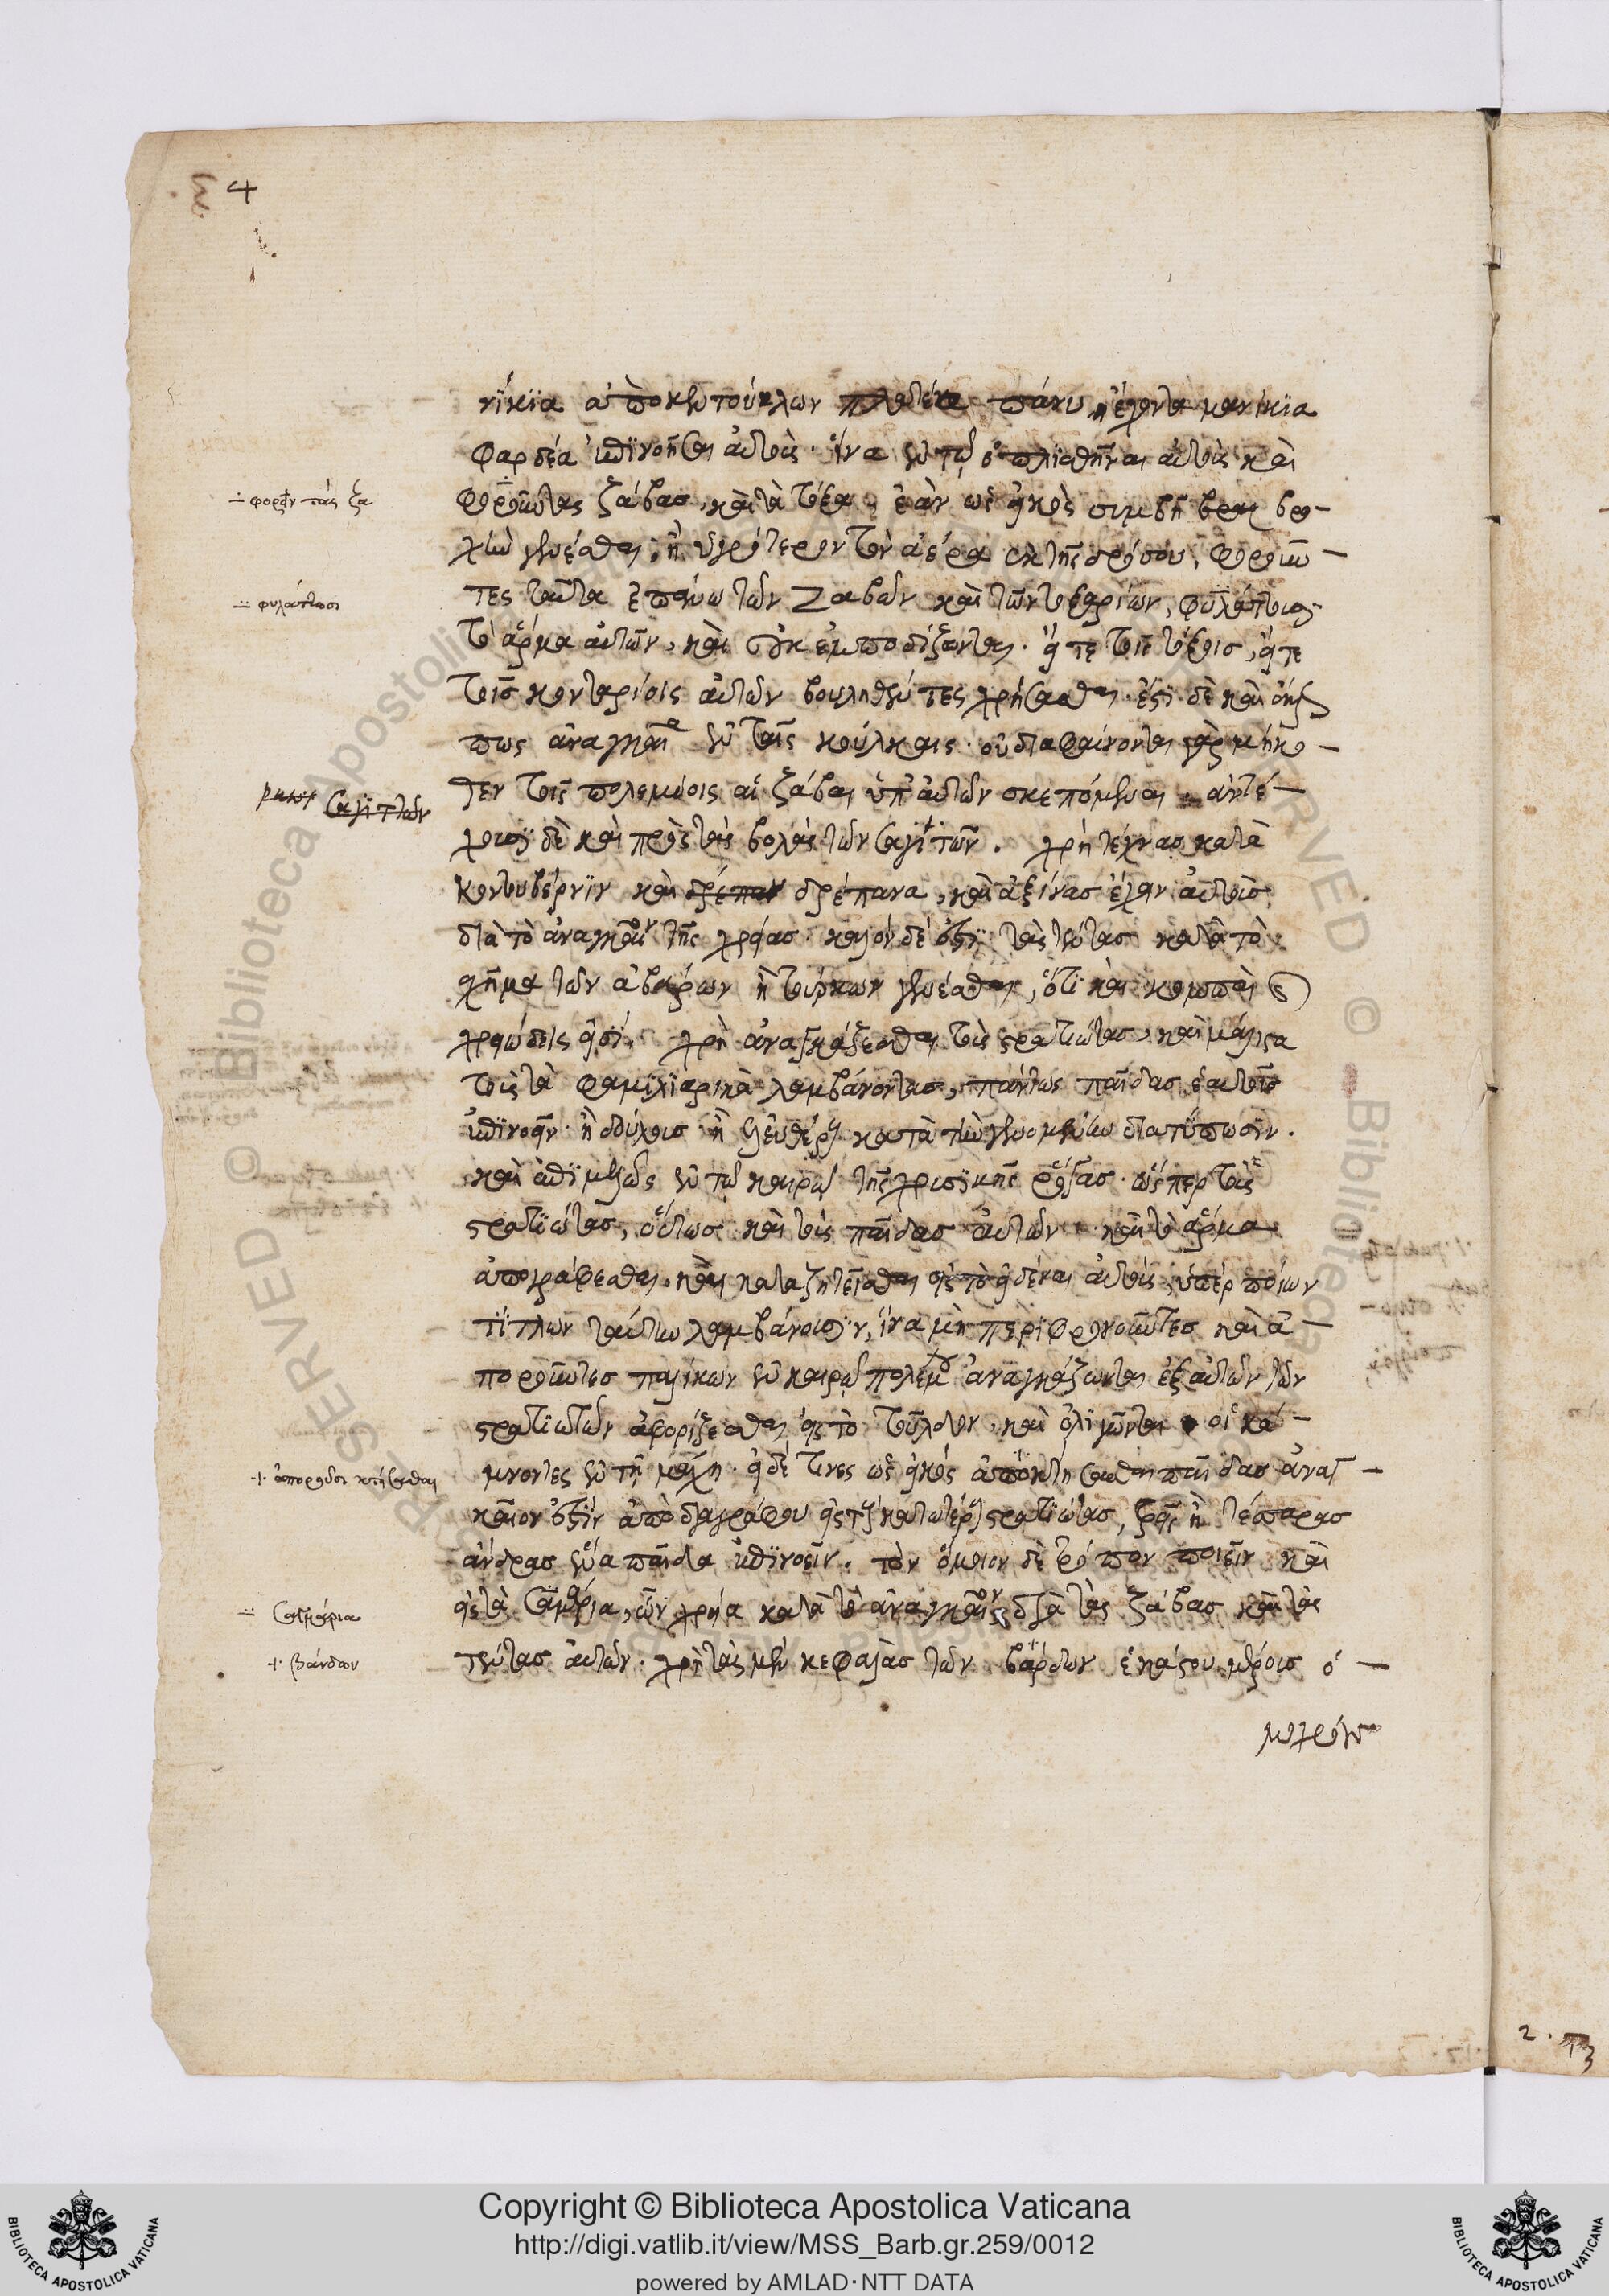 4
νίκια ἀπὸ κεντούκλων πλατέα πάνυ, ἔχοντα μανίκια
φαρδέα ἐπινοῆσαι αὐτοὺς· ἵνα ἐν τῷ ὁπλισθῆναι αὐτοὺς καὶ
φοροῦντας ζάβας, καὶ τὰ τόξα, ἐὰν ὡς εἰκὸς συμβῇ βρο-
χὴν γενέσθαι, ἢ ὑγρότερον τὸν ἀέρα ἐκ τῆς δρόσου, φοροῦν-
τες ταῦτα ἐπάνω τῶν ζαβῶν καὶ τῶν τοξαρίων, φυλάττουσι
τὸ ἄρμα αὐτῶν, καὶ οὐκ ἐμποδίζονται· εἴτε τοῖς τόξοις, εἴτε
τοῖς κονταρίοις αὐτῶν βουληθέντες χρήσασθαι· ἔστι δὲ καὶ
πως ἀναγκαῖα ἐν ταῖς σκούλκαις· οὐ διαφαίνονται γὰρ μήκο-
θεν τοῖς πολεμίοις αἱ ζάβαι ὑπ' αὐτῶν σκεπόμεναι· ἀντέ-
χουσι δὲ καὶ πρὸς τὰς βολὰς τῶν σαγιττῶν. χρὴ τέχνας κατὰ
κοντουβέρνιν καὶ δρέπαν δρέπανα, καὶ ἀξίνας ἔχειν αὐτοὺς
διὰ τὸ ἀναγκαῖον τῆς χρείας· καλὸν δέ ἐστι τὰς τένδας κατὰ τὸ
σχῆμα τῶν ἀβάρων ἢ τούρκων γενέσθαι, ὅτι καὶ κομπαὶ καὶ
χρειώδεις εἰσί. χρὴ ἀναγκάζεσθαι τοὺς στρατιώτας, καὶ μάλιστα
τοὺς τὰ φαμιλιαρικὰ λαμβάνοντας, πάντως παῖδας ἑαυτοῖς
ἐπινοεῖν· ἢ δούλους ἢ ἐλευθέρους κατὰ τὴν γενομένην διατύπωσιν.
καὶ ἐπιμελῶς ἐν τῷ καιρῷ τῆς χρηστικῆς ῥόγας· ὥσπερ τοὺς
στρατιώτας, οὕτως καὶ τοὺς παῖδας αὐτῶν· καὶ τὸ ἄρμα
ἀπογράφεσθαι, καὶ καταζητεῖσθαι εἰς τὸ εἰδέναι αὐτοὺς, ὑπὲρ ποίων
τίτλων ταύτην λαμβάνουσιν, ἵνα μὴ περιφρονοῦντες καὶ ἀ-
ποροῦντες παλίκων ἐν καιρῷ πολέμου ἀναγκάζωνται ἐξ αὐτῶν τῶν
στρατιωτῶν ἀφορίζεσθαι εἰς τὸ τοῦλδον, καὶ ὀλιγῶνται οἱ κά-
μνοντες ἐν τῇ μάχῃ· εἰ δέ τινες ὡς εἰκὸς ἀποκτήσασθαι παῖδας ἀναγ-
καῖόν ἐστιν ἀπὸ διαγράφου εἰς τοὺς κατωτέρους στρατιώτας, τρεῖς ἢ τέσσαρας
ἄνδρας ἕνα παῖδα ἐπινοεῖν. τὸν ὅμοιον δὲ τρόπον ποιεῖν καὶ
εἰς τὰ σαγμάρια, ὧν χρεία κατὰ τὸ ἀναγκαῖον διὰ τὰς ζάβας καὶ τὰς
τένδας αὐτῶν. χρὴ τὰς μὲν κεφαλὰς τῶν βάνδων ἑκάστου μέρους ὁ-
μοχρόους
÷ φορεῖν τὰς ζα
÷ φυλάττωσι
σαγιττῶν
+ ἀποροῦσι κτήσασθαι
÷ σαγμάρια
+ βάνδων
Copyright © Biblioteca Apostolica Vaticana
http://digi.vatlib.it/view/MSS_Barb.gr.259/0012
powered by AMLAD·NTT DATA
BIBLIOTECA APOSTOLICA VATICANA
BIBLIOTECA APOSTOLICA VATICANA